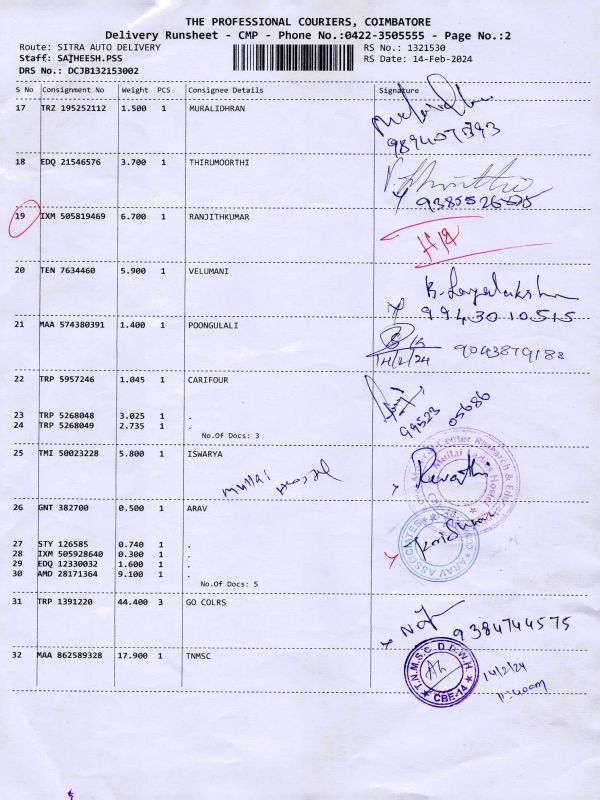 THE PROFESSIONAL COURIERS, COIMBATORE
Delivery Runsheet - CMP - Phone No.:0422-3505555 - Page No.:2
Route: SITRA AUTO DELIVERY RS No.: 1321530
Staff: SATHEESH.PSS RS Date: 14-Feb-2024
DRS No.: DCJB132153002
S No Consignment No Weight PCS Consignee Details Signature
17 TRZ 195252112 1.500 1 MURALIDHRAN
18 EDQ 21546576 3.700 1 THIRUMOORTHI
19 IXM 505819469 6.700 1 RANJITHKUMAR
20 TEN 7634460 5.900 1 VELUMANI
99430 10515
21 MAA 574380391 1.400 1 POONGULALI
14/2/24 9043879182
22 TRP 5957246 1.045 1 CARIFOUR
99523 05686
23 TRP 5268048 3.025 1 .
24 TRP 5268049 2.735 1 .
No.Of Docs: 3
25 TMI 50023228 5.800 1 ISWARYA
Mullai Revathi
26 GNT 382700 0.500 1 ARAV
ARAV ASSOCIATES
27 STY 126585 0.740 1 .
28 IXM 505928640 0.300 1 .
29 EDQ 12330032 1.600 1 .
30 AMD 28171364 9.100 1 .
No.Of Docs: 5
31 TRP 1391220 44.400 3 GO COLRS
9384744575
32 MAA 862589328 17.900 1 TNMSC
T.N.M.S.C. D.P.W.H
CBE-14
14/2/24